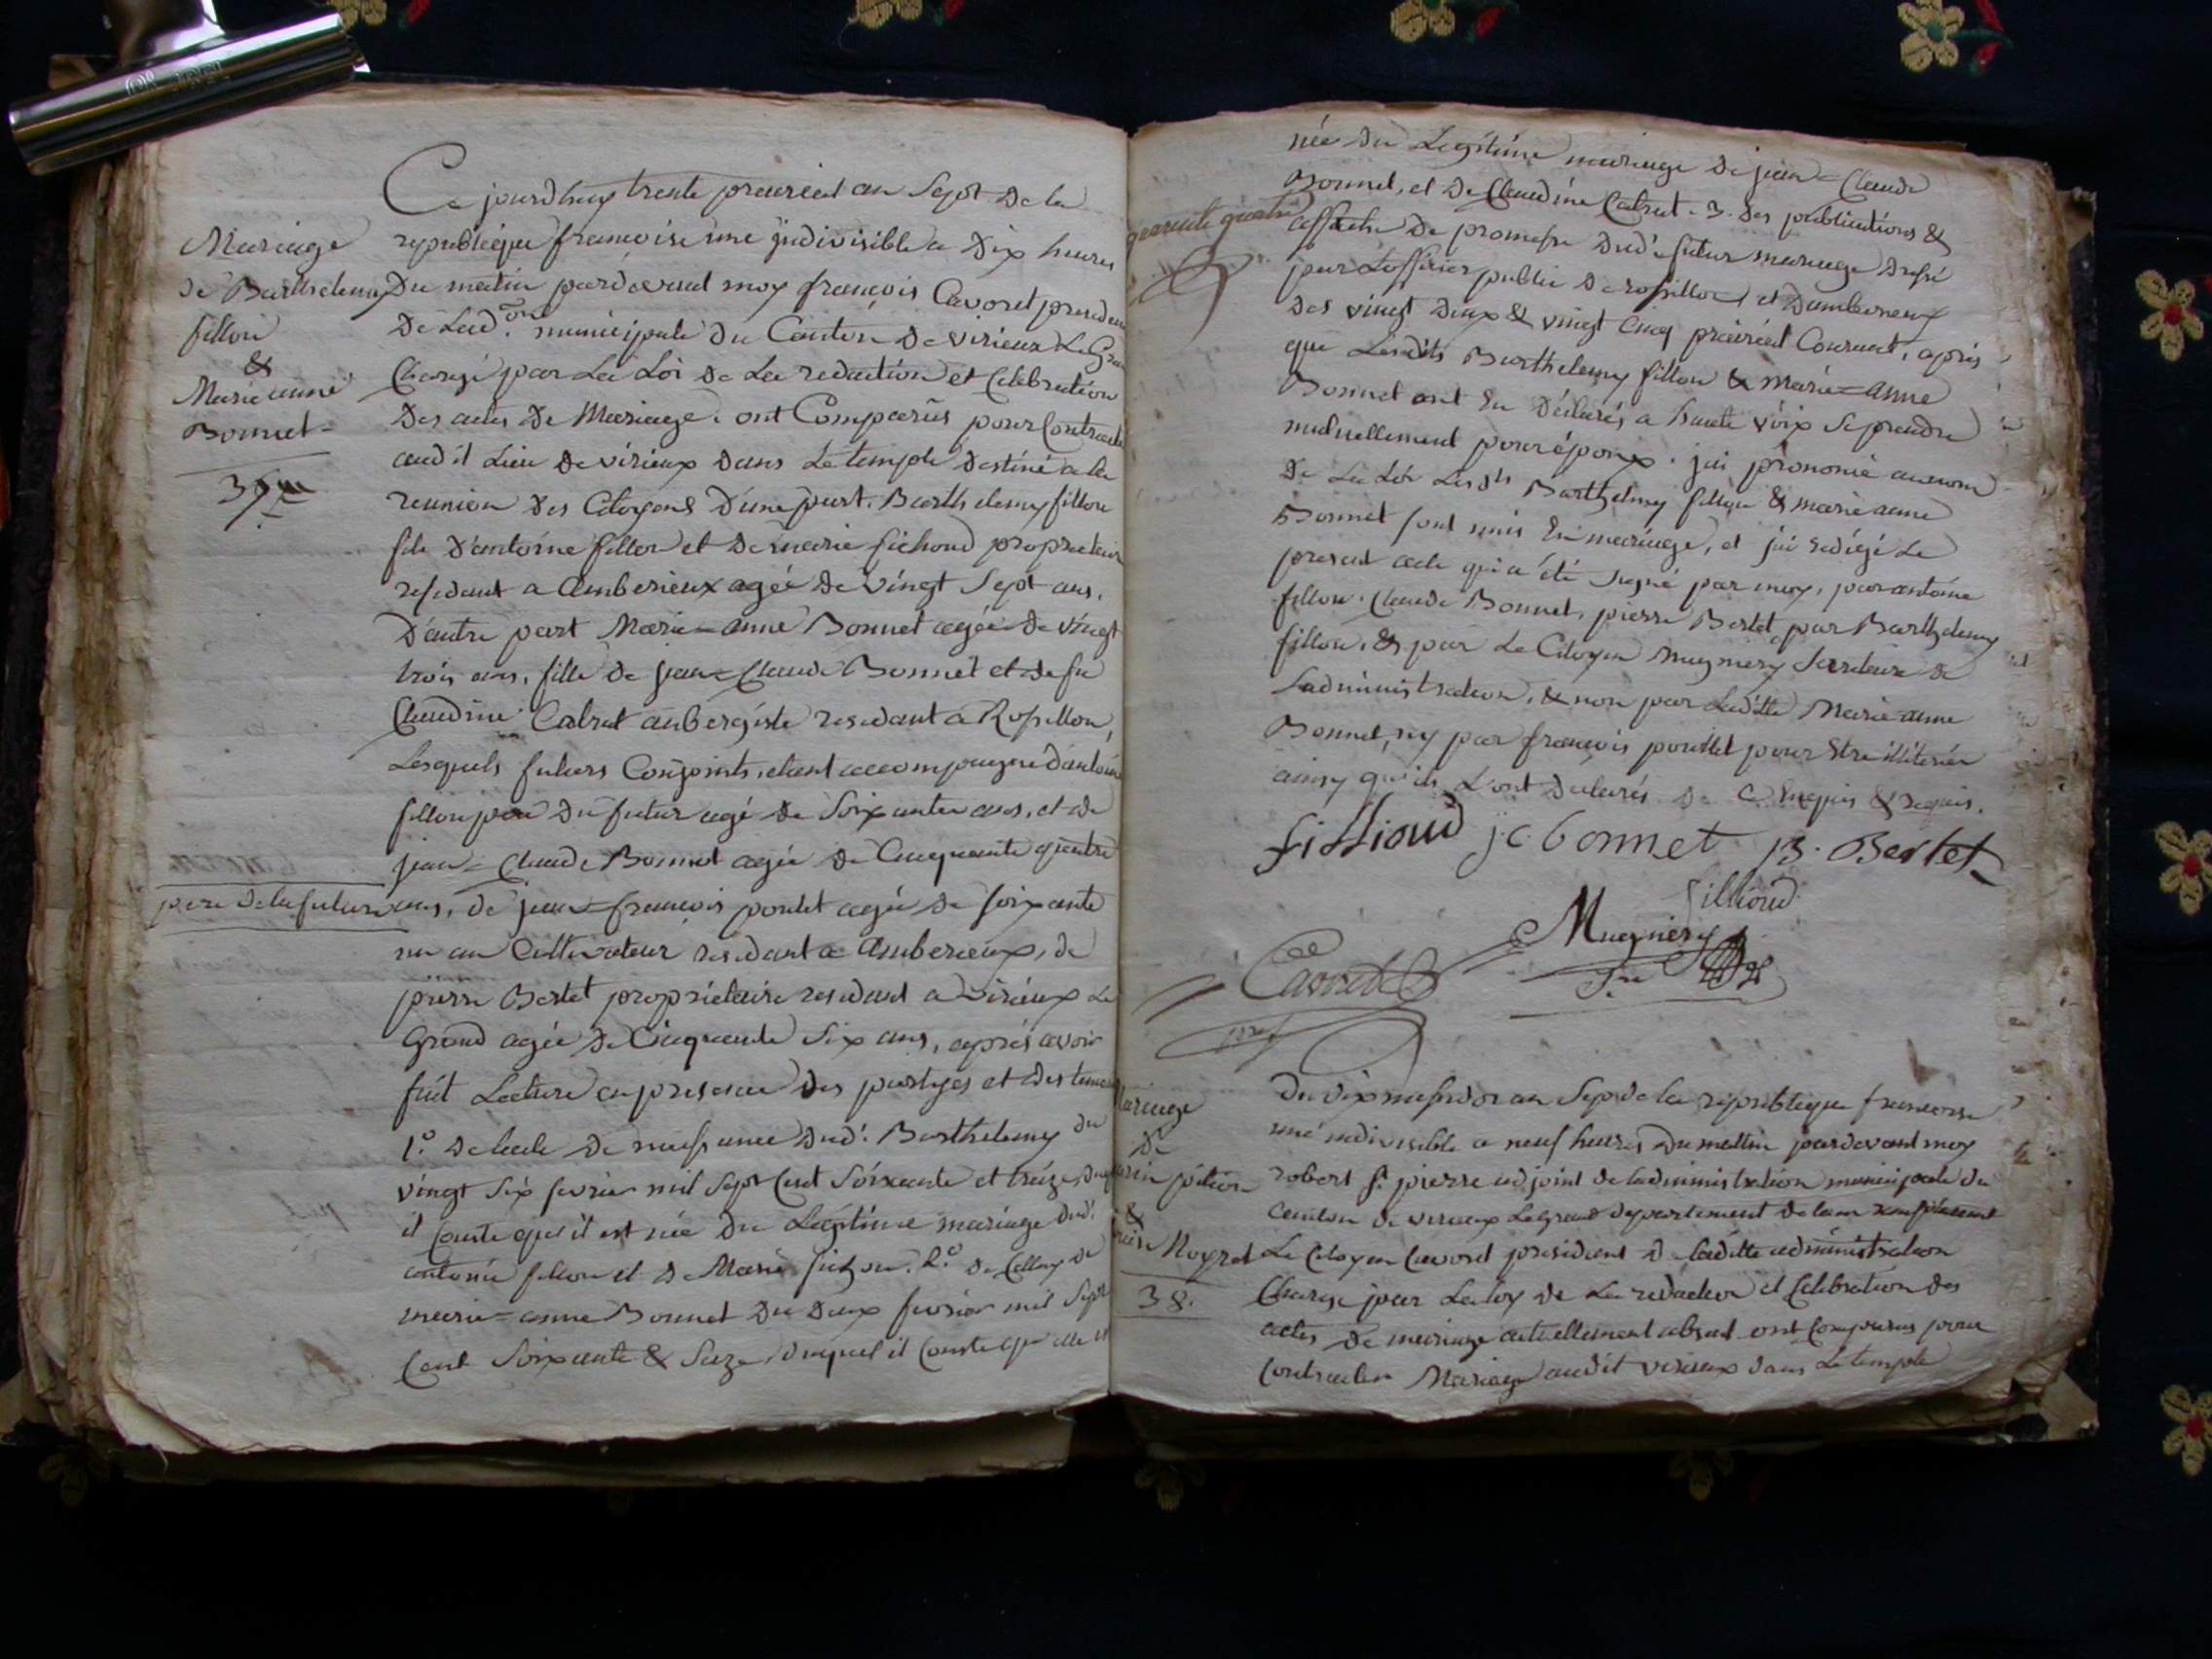 Mariage
de Barthelemy
fillon
&
Marie anne
Bonnet
37me
Ce jourdhuy trente prairial an Sept de la
republique francoise une indivisible a Dix heures
Du matin pardevant moy francois Cavoret president
De Lad.on municipale Du Canton De virieux Le Grand
Chargé par La Loi De La redaction et Celebration
Des actes De Mariage. ont Comparus pour Contracter
audit Lieu De virieux Dans Le temple Destiné a la
reunion Des Citoyens D'une part. Barthelemy fillon
fils D'antoine fillon et De marie fichoud proprietaire
residant a Amberieux agée De vingt Sept ans,
D'autre part Marie=anne Bonnet agée De vingt
trois ans, fille De jean=Claude Bonnet et De fü
Claudine Cabret aubergiste residant a Rossillon,
Lesquels futurs Conjoints, etant accompagné D'antoine
fillon pere Du futur agé De Soixante ans, et De
jean=Claude Bonnet agée De Cinquante quatre
pere De la future ans, De jean=francois poulet agée De soixante
un an Cultivateur residant a Amberieux, De
pierre Bertet proprietaire residant a Virieux Le
Grand agée De Cinquante Six ans, aprés avoir
fait Lecture en presence Des partyes et Des temoins
1.o De lacte De naissance Dud.t Barthelemy Du
vingt Six fevrier mil Sept Cent Soixante et treize, Duquel
il Conste qu'il est née Du Legitime mariage Dud.t
antoine fillon et De Marie fichou. 2.o De Celluy De
marie=anne Bonnet Du Deux fevrier mil Sept
Cent Soixante & Seize, Duquel il Conste qu'elle est
quarante quatre
née Du Legitime mariage De jean=Claude
Bonnet, et De Claudine Cabret. 3. Des publications &
affiche De promesse Dud.t futur mariage Dressé
par L'officier public De rossillon et D'amberieux
Des vingt Deux & vingt Cinq prairial Courant, aprés
que Lesdits Barthelemy fillon & Marie=anne
Bonnet ont Eu Déclarés a haute voix Se prendre
mutuellement pour époux. jai prononcé au nom
De La Loi Lesdts Barthelemy fillon & marie anne
Bonnet sont unis En mariage, et jai redigé Le
present acte qui a été Signé par moy, par antoine
fillon. Claude Bonnet, pierre Bertet, par Barthelemy
fillon, & par Le Citoyen Mugniery Secretaire De
Ladministration, & non par Laditte Marie anne
Bonnet, ny par francois poullet pour Etre illiterés
ainsy qu'ils L'ont Declarés De Ce Enquis & requis.
fillioud jc bonnet p. Bertet
fillioud
Mugniery
Cavoret
Sre
prest
Mariage
De
pilion
&
Noyret
38.
Du Dix messidor an Sept de la republique francoise
une indivisible a neuf heures Du mattin pardevant moy
robert St pierre adjoint de ladministration municipale du
canton de virieux Legrand departement de lain remplacant
Le Citoyen Cavoret president de laditte administration
Chargé par La loy de La redaction et Celebration des
actes De mariage actuellement absent ont Comparus pour
Contracter Mariage audit virieux dans Le temple